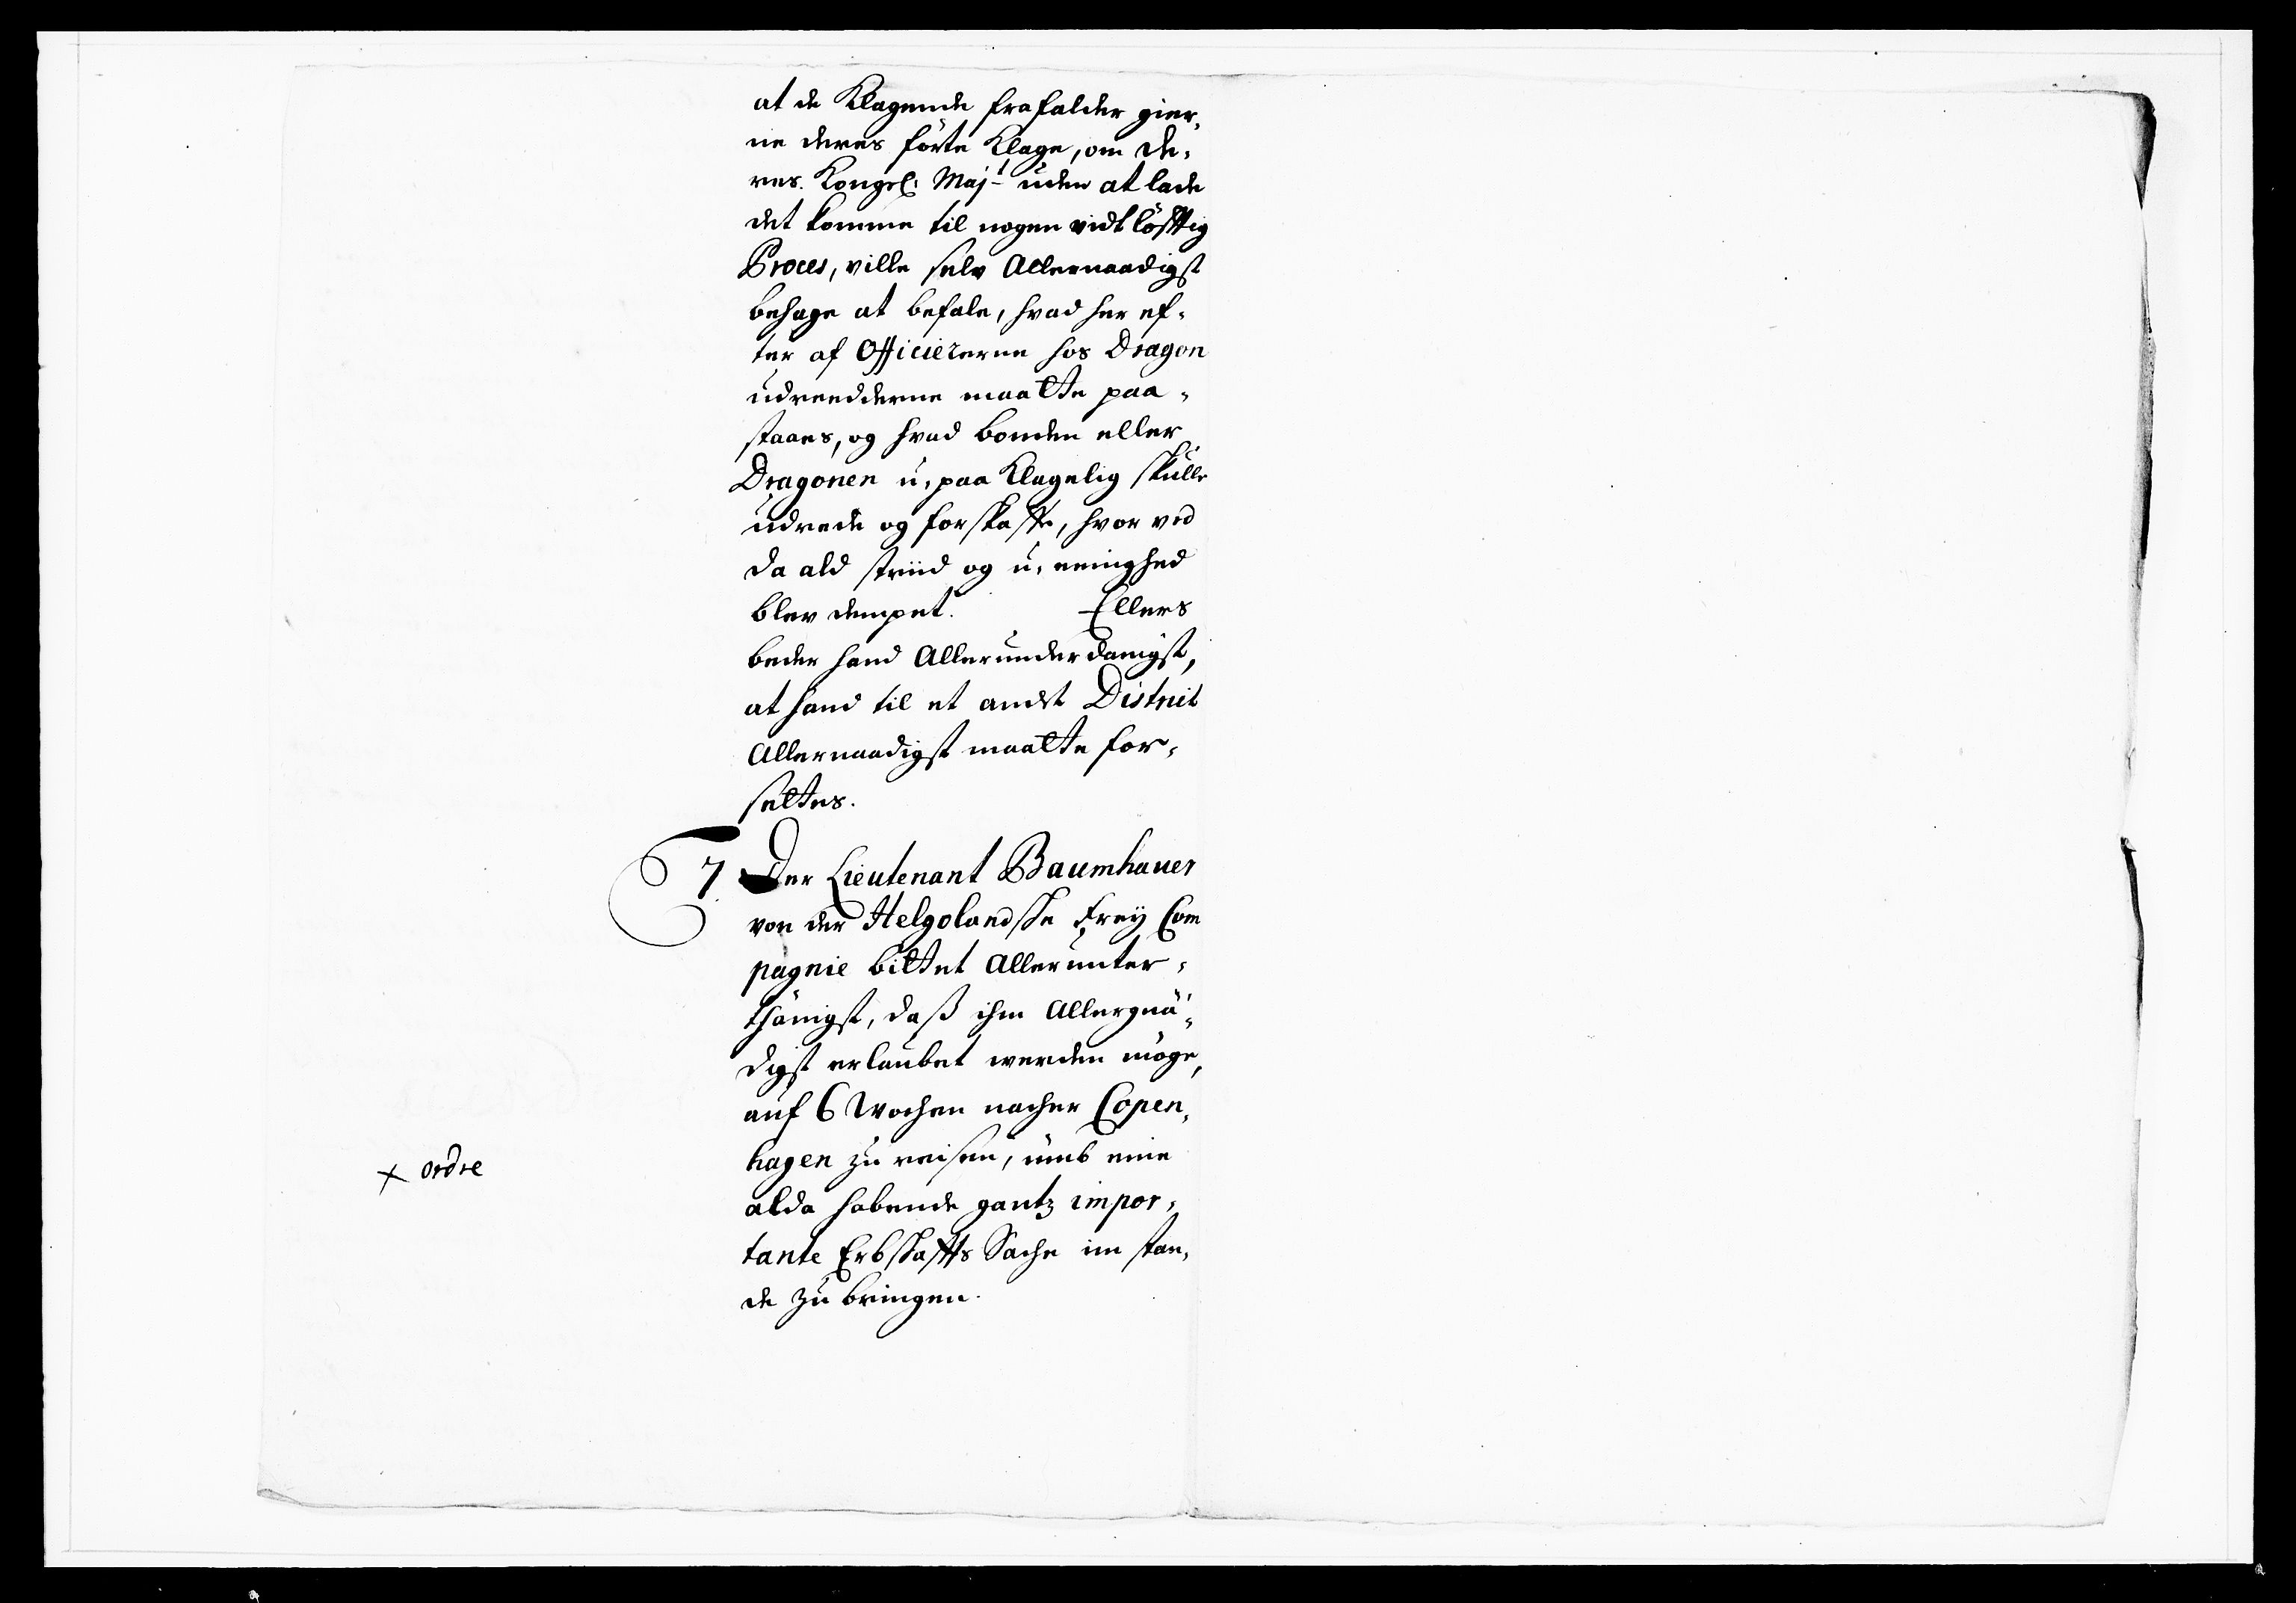 at de Klagende frafalder gier,
ne deres förte Klage, om De,
res. Kongel: Maj:t uden at lade
det komme til nogen vidtløfftig
Proces, ville selv Allernaadigst
behage at befale, hvad her ef,
ter af Officiererne hos Dragon
udreedderne maatte paa,
staaes, og hvad bonden eller
Dragonen u, paa Klagelig skulle
udrede og forskaffe, hvor ved
da ald striid og u, eenighed
blev dempet. Ellers
beder hand Allerunderdanigst,
at hand til et andet District
Allernaadigst maatte for,
settes.
7. Der Lieutenant Baumhauer
von der Helgolandsche Frey Com
pagnie bittet Allerunter,
thänigst, daß ihm Allergnä,
digst erlaubet werden möge,
auf 6 Wochen nacher Copen,
hagen zu reisen, umb eine
x ordre
alda habende gantz impor,
tante Erbschaffts Sache im stan,
de zu bringen.